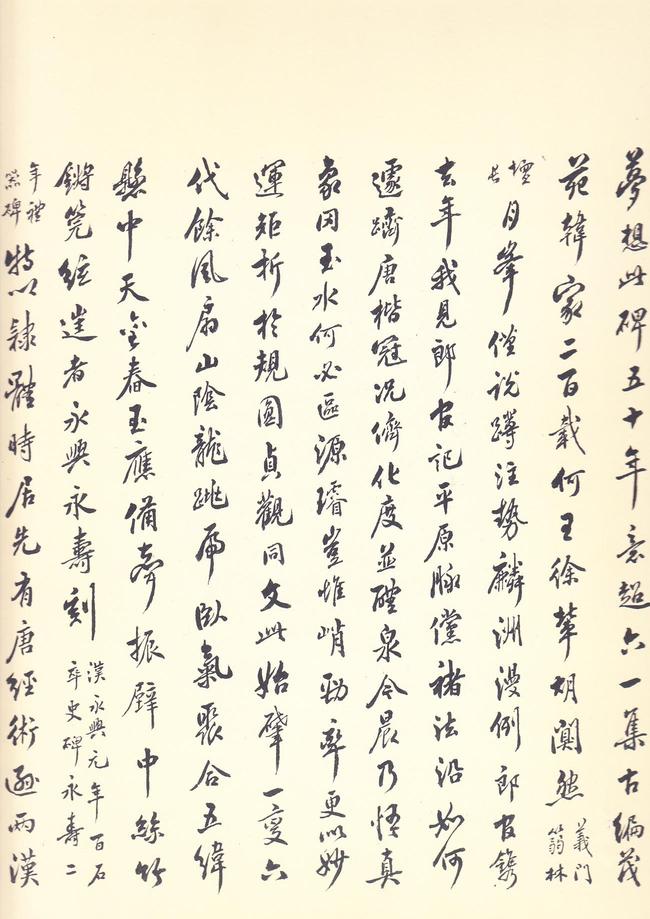 夢想此碑五十年意超六一集古編茂
苑韓家二百載何王徐華胡闃然義門
篛林
壇長月峯僅説蹲注勢麟洲漫例郎官鐫
去年我見郎官記平原脈儻褚法沿如何
遽躋唐楷冠况儕化度並醴泉今晨乃悟真
象罔玉水何必區源璿豈惟峭勁率更似妙
運矩折於規圓貞觀同文此始肇一變六
代餘風扇山陰龍跳虎卧氣聚合五緯
懸中天金舂玉應備齊振壁中絲竹
鏘筦絃逮者永興永壽刻漢永興元年百石
卒史碑永壽二
年禮
器碑特以隸體時居先有唐經術遜兩漢